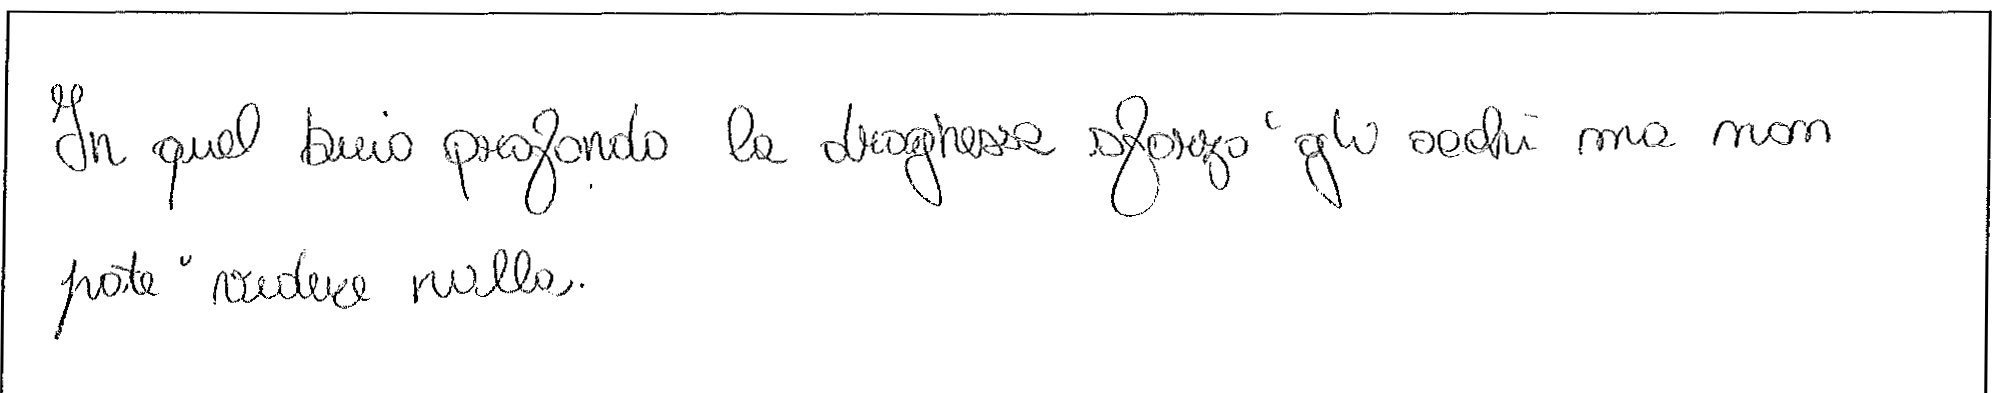 In quel buio profondo la draghessa sforzo' gli occhi ma non
pote' vedere nulla.